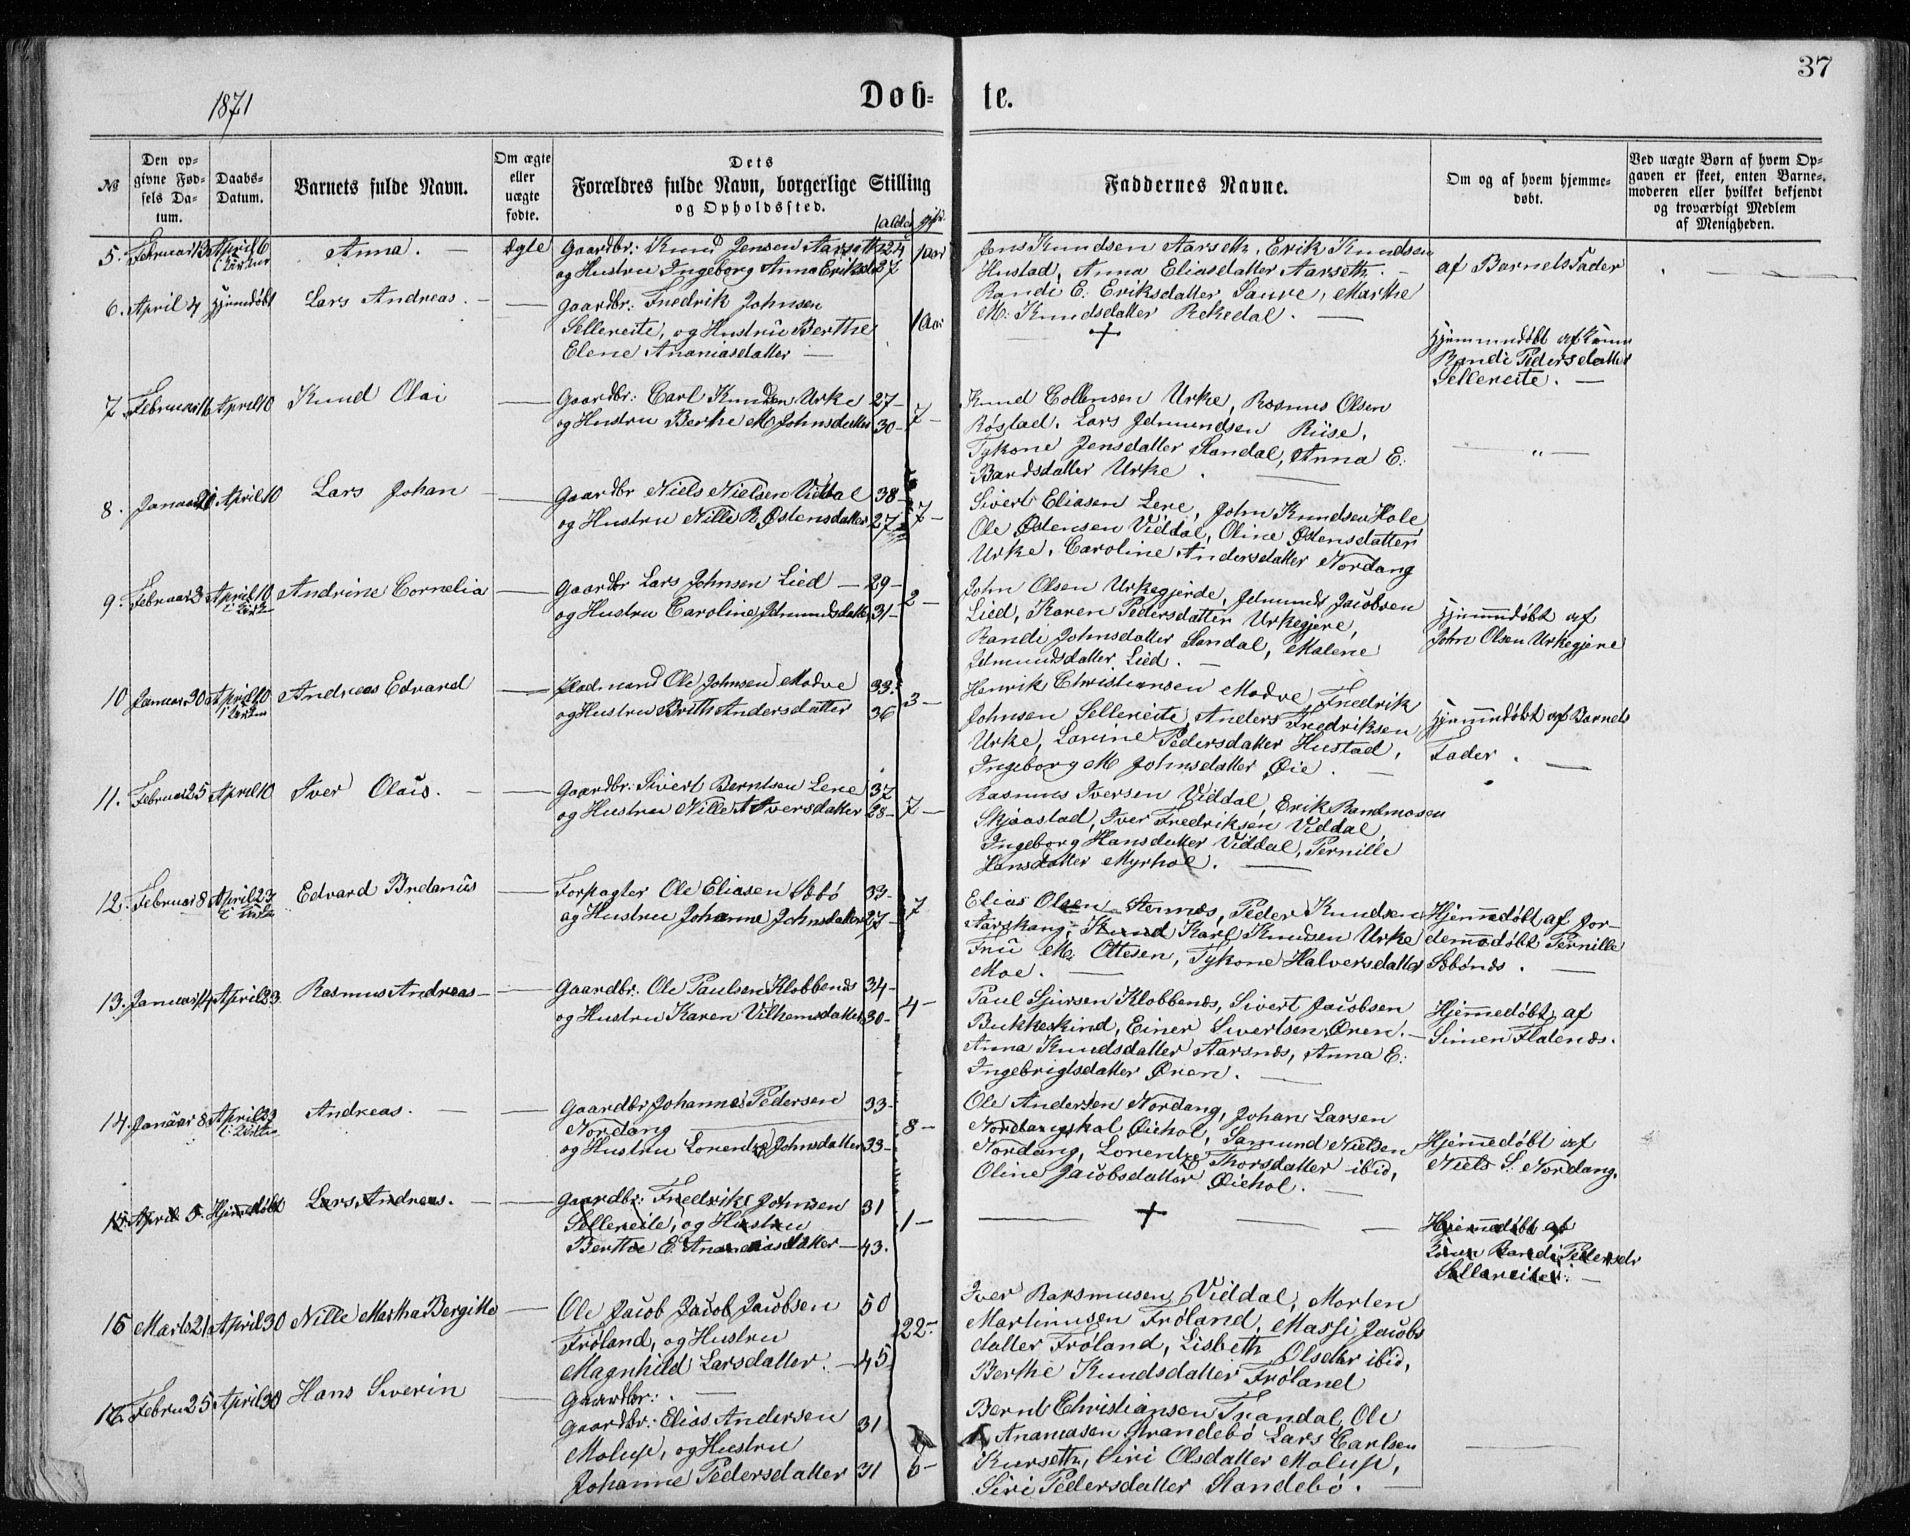 37
1871
Døb- te.
№
Den opgivne Fødsels Datum.
Daabs-Datum.
Barnets fulde Navn.
Om ægte eller uægte fødte.
Dets Forældres fulde Navn, borgerlige Stilling og Opholdssted.
alder
gift
Faddernes Navne.
Om og af hvem hjemmedøbt.
Ved uægte Børn af hvem Opgaven er skeet, enten Barnemoderen eller hvilket bekjendt og troværdigt Medlem af Menigheden.
5. Februar 13 April 6 Anna. Ægte Gaardbr: Knud Jensen Aarseth 24 1 aar
og Hustru Ingeborg Anna Eriksdr 27
Jens Knudsen Aarseth, Erik Knudsen
Hustad, Anna Eliasdatter Aarseth.
Randi E. Eriksdatter Saure, Marthe
M. Knudsdatter Rekedal.
af Barnets Fader
6. April 4 Hjemdøbt Lars Andreas. Gaardbr: Fredrik Johnsen
Sellereite, og Hustru Berthe 1 Aar
Elene Ananiasdatter
+
Hjemmedøbt af
Randi Pedersdatter
Sellereite.
7 Februar 16 April 10 Knud Olai Gaardbr: Carl Knudsen Urke 27
og Hustru Berthe M Johnsdatter 30 7
Knud Collensen Urke, Rasmus Olsen
Røstad, Lars Jdmundsen Riise,
Tykone Jensdatter Standal, Anna E.
Baardsdatter Urke
"
8. Januar April 10 Lars Johan Gaardbr Niels Nielsen Viddal 38
og Hustru Nille R. Østensdatter 27 7
Sivert Eliasen Lene, John Knudsen Hole
Ole Østensen Viddal, Oline Østensdatter
Urke, Caroline Andersdatter Nordang
9. Februar 3 April 10 Andrine Cornelia Gaardbr Lars Johnsen Lied 29
og Hustru Caroline Jdmundsdatter 31 2
John Olsen Urkegjerde, Jdmund Jacobsen
Lied, Karen Pedersdatter Urkegjere,
Randi Johnsdatter Standal, Malene
Jdmundsdatter Lied.
Hjemmedøbt af
John Olsen Urkegjere
10 Januar 30 April 10 Andreas Edvard Ole Johnsen Modve 33
og Hustru Brith Andersdatter 36 3
Henrik Christiansen Modve, Fredrik
Johnsen Sellereite, Anders Fredriksen
Urke, Lovine Pedersdatter Hustad,
Ingeborg M Johnsdatter Øie.
Hjemmedøbt af Barnets
Fader.
11. Februar 25 April 10 Iver Olaus. Gaardbr: Sivert Berntsen Lene 37
og Hustru Nille A Iversdatter 28 7
Rasmus Iversen Viddal, Erik Randmosen
Skjaastad, Iver Fredriksen Viddal,
Ingeborg Hansdatter Viddal, Pernille
Hansdatter Myrhol.
12. Februar 8 April 23 Edvard Bredanius Forpagter Ole Eliasen Sæbø 33
og Hustru Johanne Johnsdatter 27 7
Elias Olsen Aarnæs, Peder Knudsen
Aarskang, Knud Karl Knudsen Urke
Fru M. Ottesen, Tykone Halversdatter
Moe.
Hjemmedøbt af Jor-
demoder Pernille
Sæbønæs.
13. Januar 14 April 23 Rasmus Andreas Gaardbr. Ole Paulsen Klobbenæs 34
og Hustru Karen Vilhemsdatter 30 4
Paul Sjursen Klobbenæs, Sivert Jacobsen
Bukkeskind, Einer Sivertsen Øren.
Anna Knudsdatter Aarsnæs, Anna E.
Ingebrigtsdatter Øren.
Hjemmedøbt af
Simen Flatenæs.
14. Januar 8 April 23 Andreas. Gaardbr Johannes Pedersen 33
Nordang 8
og Hustru Lorentze Johnsdatter 33
Ole Andersen Nordang, Johan Larsen
Nordangshol Øiehol, Samund Nielsen
Nordang, Lorentze Thorsdatter ibid,
Oline Jacobsdatter Øiehol.
Hjemmedøbt af
Niels S. Nordang.
15. April 5. Hjemmedøbt Lars Andreas. Gaardbr: Fredrik Johnsen 31
Sellereite, og Hustru 1
Berthe E. Ananiasdatter 43.
+
Hjemmedøbt af
Konen Randi Pedersdr
Sellereite.
15 Marts 21 April 30 Nille Martha Bergitte Ole Jacob Jacob Jacobsen 50
Frøland, og Hustru 22
Magnhild Larsdatter. 45
Iver Rasmusen Viddal, Morten
Martinusen Frøland, Massi Jacobs
datter Frøland, Lisbeth Olsdtr ibid,
Berthe Knudsdatter Frøland
16. Febru 25 April 30 Hans Severin Gaardbr:
Gaardbr: Elias Andersen 31
Molup, og Hustru
Johanne Pedersdatter 31 6
Bernt Christiansen Trandal, Ole
Ananiasen Strandebø Lars Carlsen
Kurseth, Siri Olsdatter Molup,
Siri Pedersdatter Standebø.